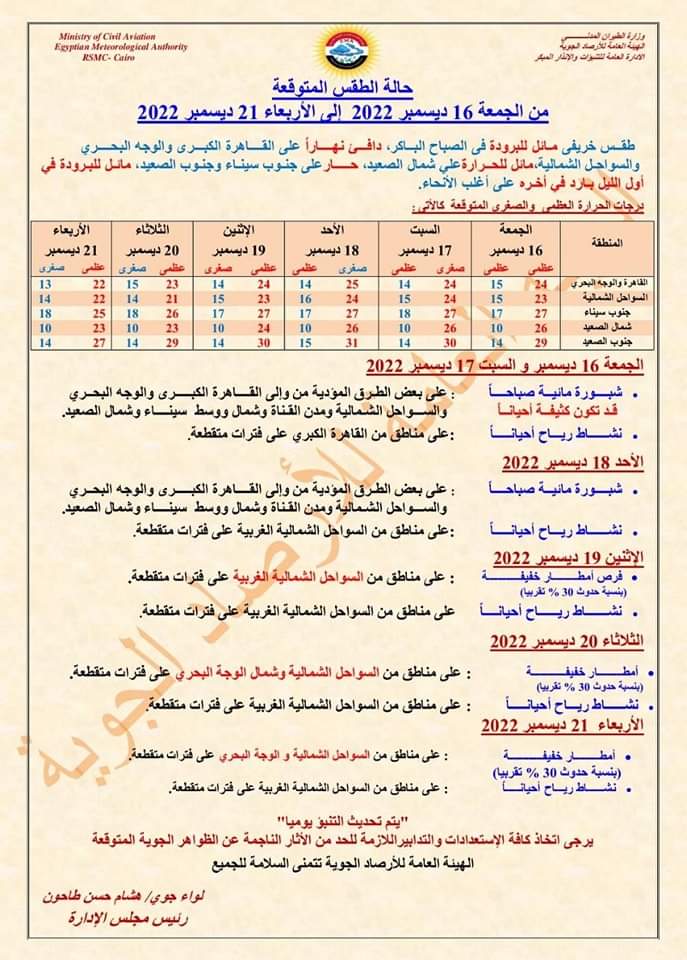 Ministry of Civil Aviation
Egyptian Meteorological Authority
RSMC- Cairo
وزارة الطيران المدنـــي
الهيئة العامة للأرصاد الجوية
الادارة العامة للتنبؤات والإنذار المبكر
حالة الطقس المتوقعة
من الجمعة 16 ديسمبر 2022 إلى الأربعاء 21 ديسمبر 2022
طقس خريفى مائل للبرودة فى الصباح الباكر، دافئ نهاراً على القاهرة الكبرى والوجه البحري
والسواحل الشمالية،مائل للحرارة علي شمال الصعيد، حار على جنوب سيناء وجنوب الصعيد، مائل للبرودة في
أول الليل بارد في أخره على أغلب الأنحاء.
درجات الحرارة العظمى والصغرى المتوقعة كالأتي:
المنطقة الجمعة السبت الأحد الإثنين الثلاثاء الأربعاء
16 ديسمبر 17 ديسمبر 18 ديسمبر 19 ديسمبر 20 ديسمبر 21 ديسمبر
عظمى صغرى عظمى صغرى صغرى عظمى عظمى صغرى عظمى صغرى عظمى صغرى
القاهرة والوجه البحري 24 15 24 14 25 14 24 14 23 15 22 13
السواحل الشمالية 23 15 24 15 24 16 24 14 21 14 22 14
جنوب سيناء 27 17 27 18 27 17 27 17 26 18 25 18
شمال الصعيد 26 10 26 10 26 10 24 10 23 10 23 10
جنوب الصعيد 29 14 30 14 31 15 30 14 29 14 27 14
الجمعة 16 ديسمبر و السبت 17 ديسمبر 2022
• شبورة مائية صباحاً : على بعض الطرق المؤدية من وإلى القاهرة الكبرى والوجه البحري
قد تكون كثيفة أحياناً والسواحل الشمالية ومدن القناة وشمال ووسط سيناء وشمال الصعيد.
• نشاط رياح أحياناً :على مناطق من القاهرة الكبري على فترات متقطعة.
الأحد 18 ديسمبر 2022
• شبورة مائية صباحاً : على بعض الطرق المؤدية من وإلى القاهرة الكبرى والوجه البحري
والسواحل الشمالية ومدن القناة وشمال ووسط سيناء وشمال الصعيد.
• نشاط رياح أحياناً :على مناطق من السواحل الشمالية الغربية على فترات متقطعة.
الإثنين 19 ديسمبر 2022
• فرص أمطار خفيفة : على مناطق من السواحل الشمالية الغربية على فترات متقطعة.
(بنسبة حدوث 30 % تقريبا)
• نشاط رياح أحياناً على مناطق من السواحل الشمالية الغربية على فترات متقطعة.
الثلاثاء 20 ديسمبر 2022
• أمطار خفيفة : على مناطق من السواحل الشمالية وشمال الوجة البحري على فترات متقطعة.
(بنسبة حدوث 30 % تقريبا)
• نشاط رياح أحياناً : على مناطق من السواحل الشمالية الغربية على فترات متقطعة.
الأربعاء 21 ديسمبر 2022
• أمطار خفيفة : على مناطق من السواحل الشمالية و الوجة البحري على فترات متقطعة.
(بنسبة حدوث 30 % تقريبا)
• نشاط رياح أحياناً : على مناطق من السواحل الشمالية الغربية على فترات متقطعة.
"يتم تحديث التنبؤ يوميا"
يرجى اتخاذ كافة الإستعدادات والتدابيراللازمة للحد من الأثار الناجمة عن الظواهر الجوية المتوقعة
الهيئة العامة للأرصاد الجوية تتمنى السلامة للجميع
لواء جوي/ هشام حسن طاحون
رئيس مجلس الإدارة
العامة للأرصاد الجوية